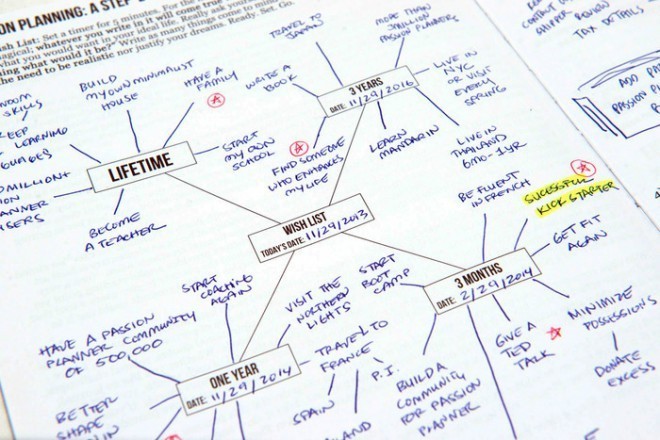 ON PLANNING: A STEP
ish List: Set a timer for 5 minutes. For the
agical; whatever you write in it will come true
what you would want in your ideal life. Really ask yourself
hing what would it be? Write as many things come to mind
the need to be realistic nor justify your dreams. Ready. Set. Go.
LIFETIME
SKILLS
KEEP
LEARNING
MILLION+
BECOME
A TEACHER
BUILD
MY OWN MINIMALIST
HOUSE
HAVE A
FAMILY
START
MY OWN
SCHOOL
3 YEARS
DATE: 11/29/2016
TRAVEL TO
JAPAN
MORE THAN
PASSION PLANNERS
WRITE A
BOOK
FIND SOMEONE
WHO ENHANCES
MY LIFE
LEARN
MANDARIN
LIVE IN
NYC
OR VISIT
EVERY
SPRING
LIVE IN
THAILAND
6MO-1YR
WISH LIST
TODAY'S DATE: 11/29/2013
3 MONTHS
DATE: 2/29/2014
START
BOOT
CAMP
BE FLUENT
IN FRENCH
SUCESSFUL
KICKSTARTER
GET FIT
AGAIN
MINIMIZE
POSSESSIONS
DONATE
EXCESS
GIVE A
TED
TALK
BUILD A
COMMUNITY
FOR PASSION
PLANNER
ONE YEAR
DATE: 11/29/2014
START
COACHING
AGAIN
HAVE A PASSION
PLANNER COMMUNITY
OF 500,000
BETTER
SHAPE
VISIT THE
NORTHERN
LIGHTS
TRAVEL TO
FRANCE
P.I.
SPAIN
REVIEW
TAX DETAILS
SHIPPER
ADD
PASSION